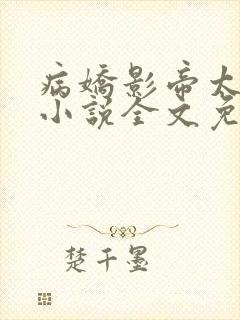 病嬌影帝太
小說全文免
楚千墨